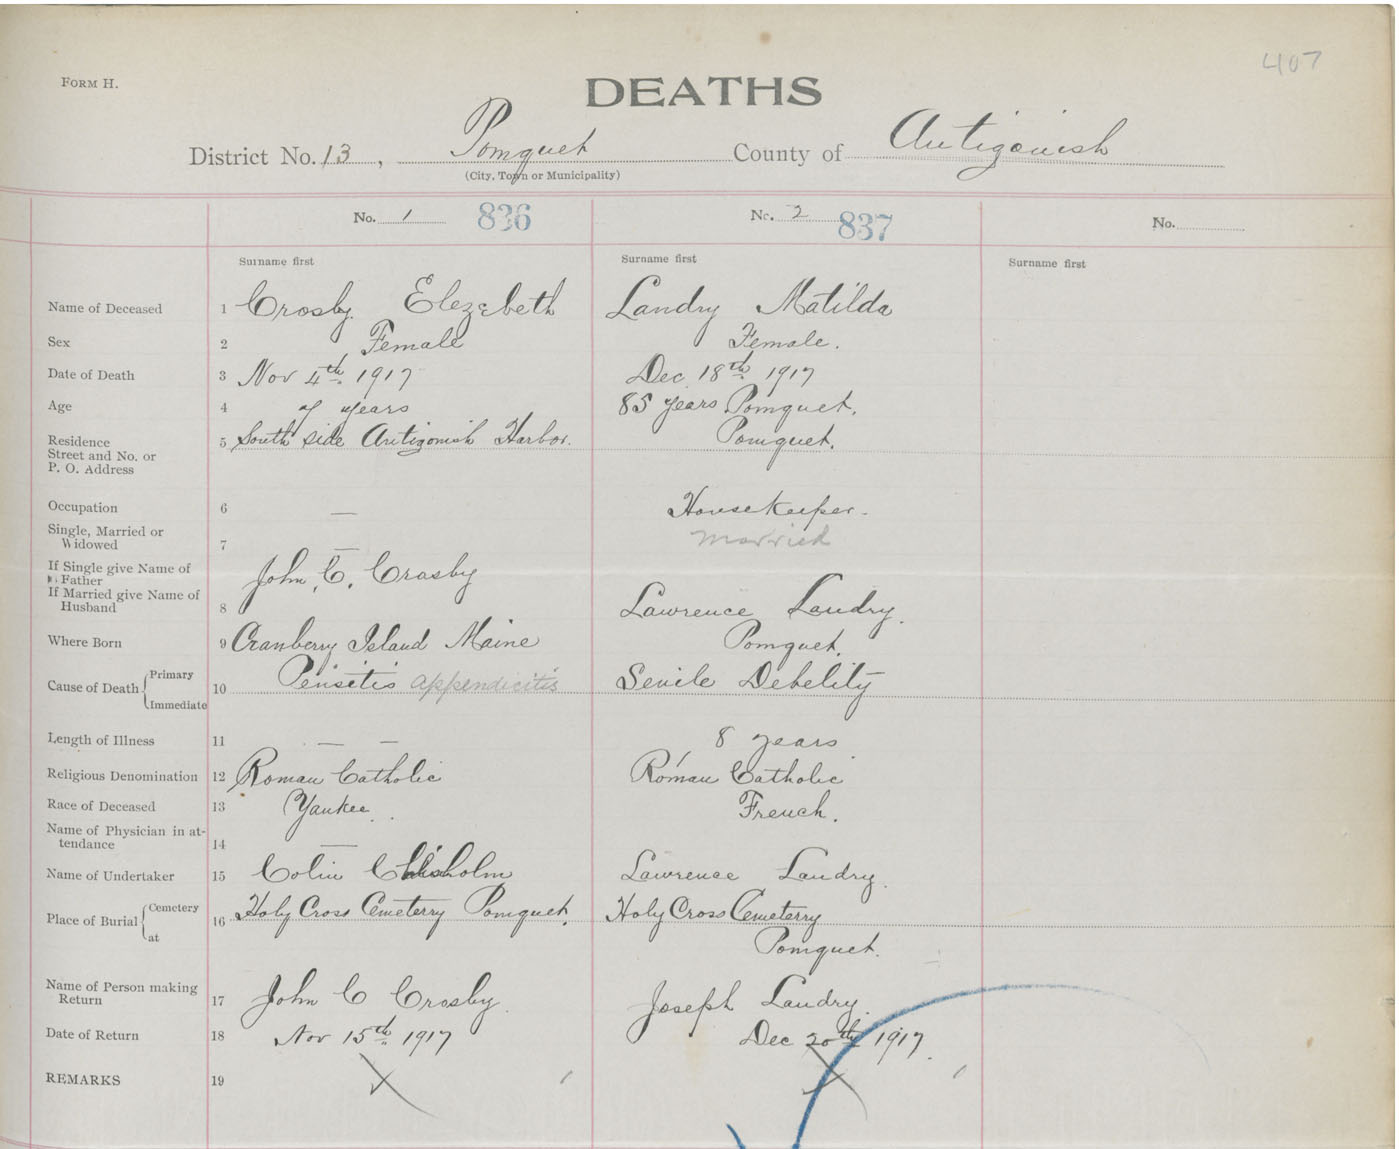 407
FORM H.
DEATHS
District No. 13, Pomquet County of Antigonish
(City, Town or Municipality)
No. 1 836 No. 2 837 No.
Surname first Surname first Surname first
Name of Deceased 1 Crosby Elezebeth Landry Matilda
Sex 2 Female Female.
Date of Death 3 Nov 4th 1917 Dec 18th 1917
Age 4 years 85 years Pomquet.
Residence 5 South side Antigonish Harbor. Pomquet.
Street and No. or
P. O. Address
Occupation 6 — Housekeeper.
Single, Married or
Widowed 7 — married
If Single give Name of
Father John C. Crosby
If Married give Name of
Husband 8 Lawrence Landry.
Where Born 9 Cranberry Island Maine Pomquet.
Cause of Death { Primary
10 appendicitis Senile Debelity
Immediate
Length of Illness 11 — — 8 years
Religious Denomination 12 Roman Catholic Roman Catholic
Race of Deceased 13 Yankee. French.
Name of Physician in at-
tendance 14 —
Name of Undertaker 15 Colin Chisholm Lawrence Landry.
Place of Burial { Cemetery
16 Holy Cross Cemeterry Pomquet. Holy Cross Cemeterry
at Pomquet.
Name of Person making
Return 17 John C Crosby. Joseph Landry.
Date of Return 18 Nov 15th 1917 Dec 20th 1917.
REMARKS 19